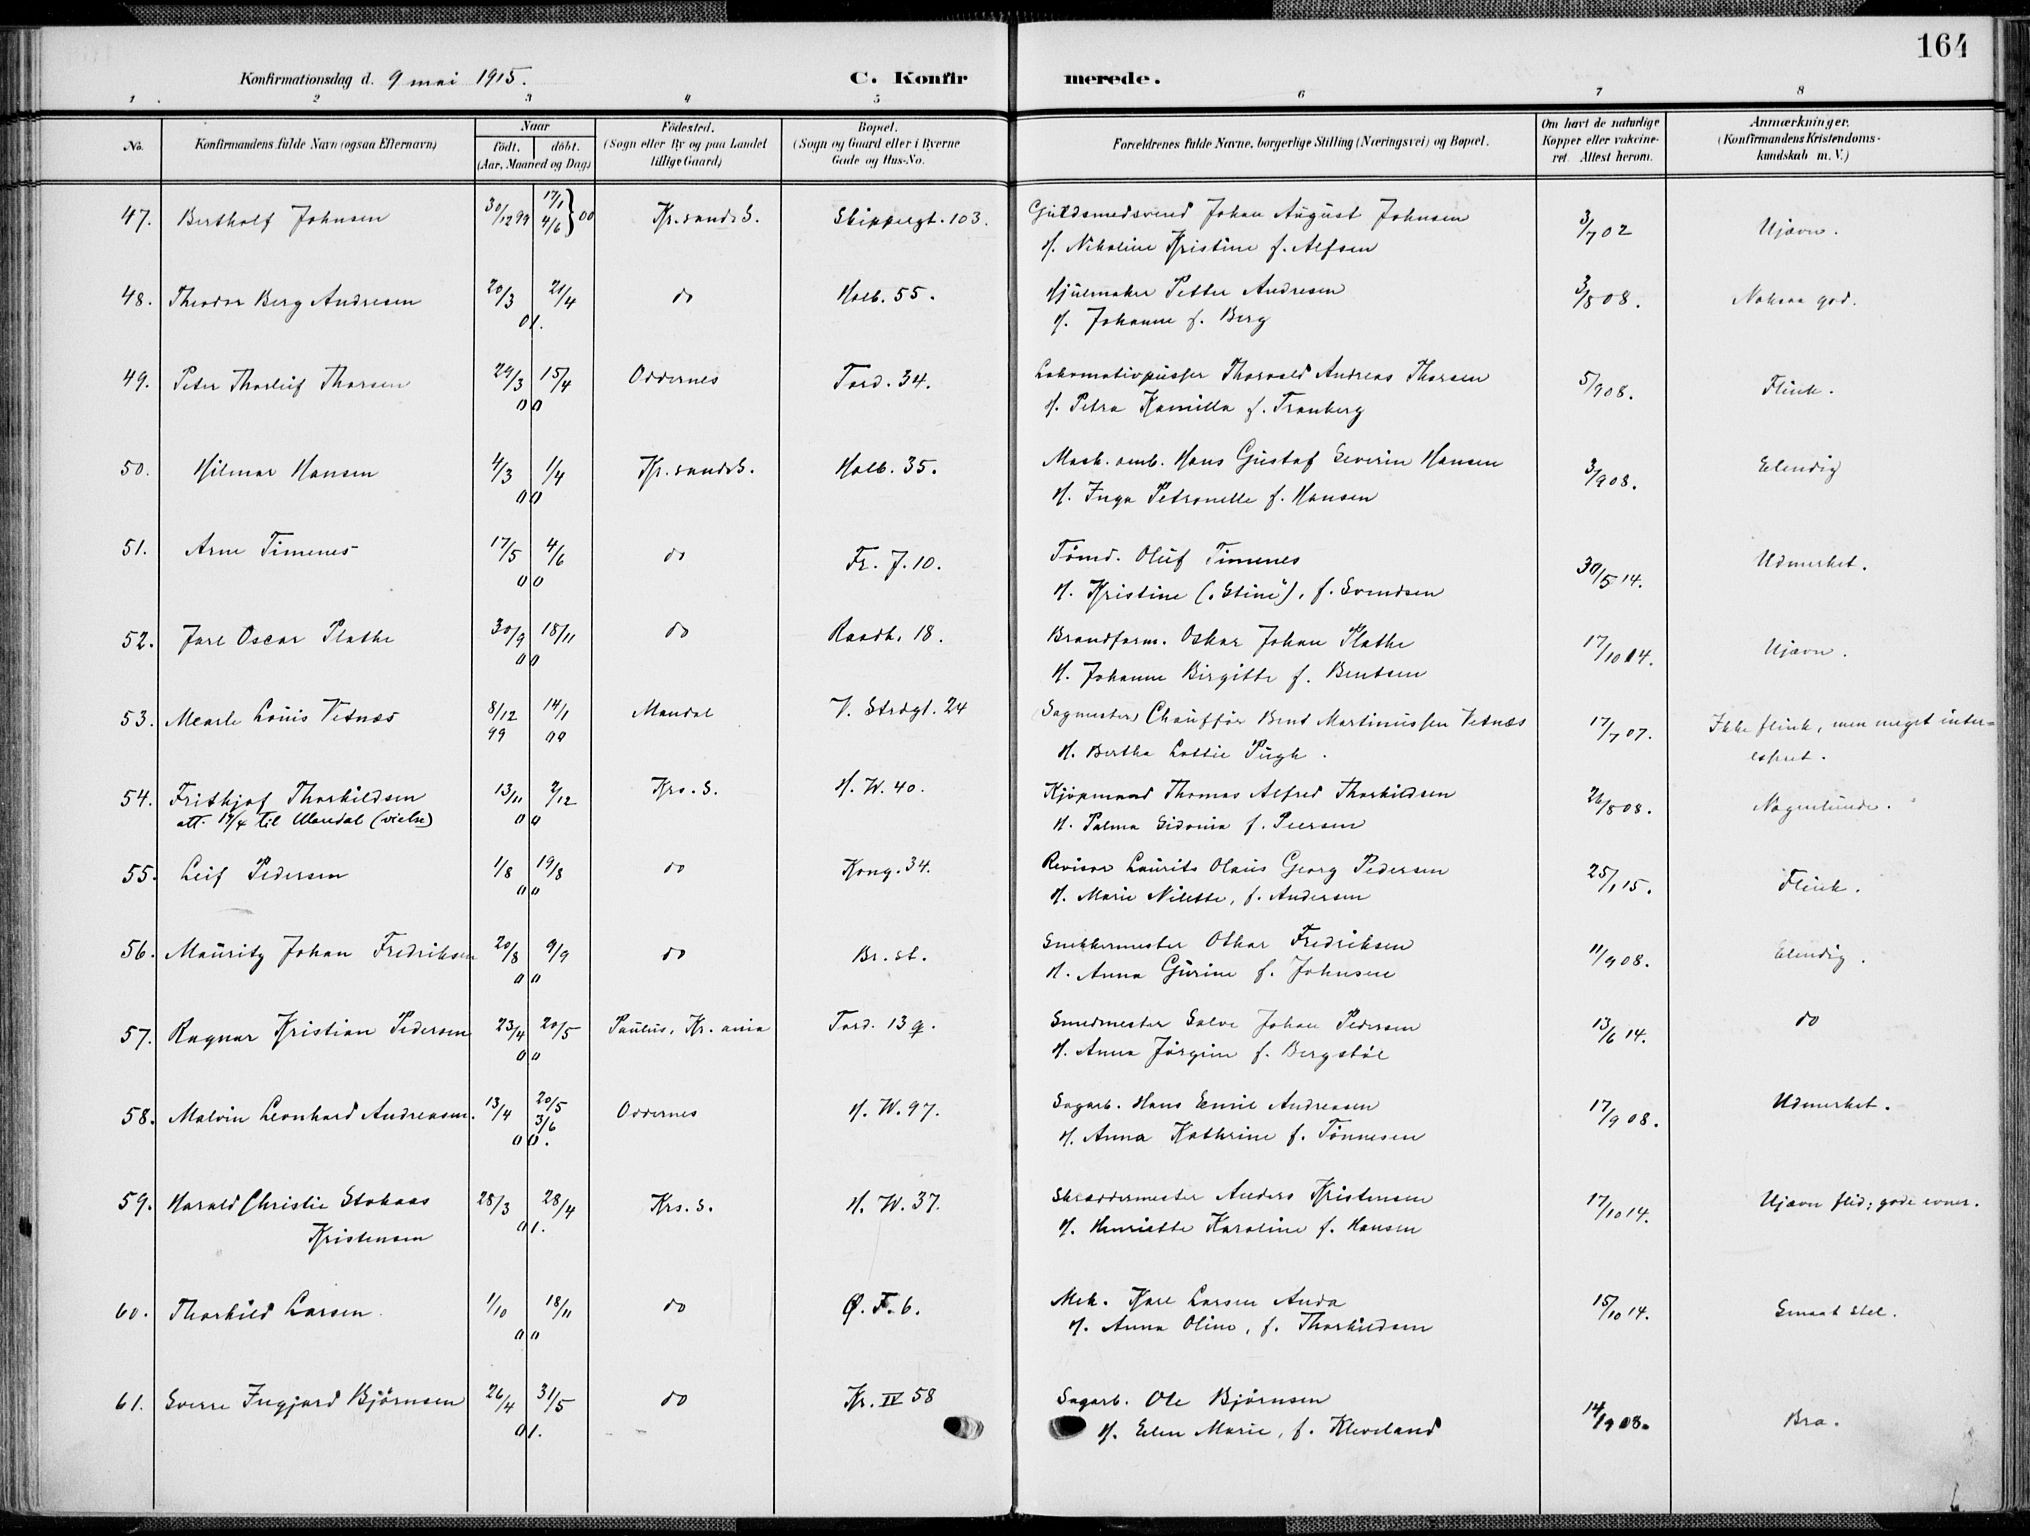 164
Konfirmationsdag d. 9 mai 1915. C. Konfirmerede.
1 2 3 4 5 6 7 8
No. Konfirmandens fulde Navn (ogsaa Efternavn) Naar født. døbt. (Aar, Maaned og Dag) Fødested. (Sogn eller By og paa Landet tillige Gaard) Bopæl. (Sogn og Gaard eller i Byerne Gade og Hus-No. Forældrenes fulde Navne, borgerlige Stilling (Næringsvei) og Bopæl. Om havt de naturlige Kopper eller vakcineret. Attest herom. Anmærkninger. (Konfirmandens Kristendomskundskab m. V.)
47. Bertholf Johnsen 30/12 99 17/1 4/6 } 00 Kr.sand S. Skippergt. 103. Guldsmedsvend Johan August Johnsen 3/7 02 Ujævn.
H. Nikoline Kristine f. Alfsen
48. Theodor Berg Andresen 20/3 21/4 do Holb. 55. Hjulmaker Petter Andresen 3/8 08. Noksaa god.
01. H. Johanne f. Berg
49. Peter Thorleif Thorsen 29/3 15/4 Oddernes Tord. 34. Lokomotivpusser Thorvald Andreas Thorsen 5/9 08. Flink.
00 H. Petra Kamilla f. Tranberg
50. Hilmar Hansen 4/3 1/4 Kr.sand S. Holb. 35. Mask. arb. Hans Gustaf Severin Hansen 3/9 08. Elendig
00 H. Inga Petronelle f. Hansen
51. Arne Timenes 17/5 4/6 do Fr. J. 10. Tømd. Oluf Timenes 30/5 14. Udmerket.
00 H. Kristine ("Stine"), f. Svendsen
52. Jarl Oscar Plathe 30/9 18/11 do Raadh. 18. Brandform. Oskar Johan Plathe 17/10 14. Ujævn.
00 H. Johanne Birgitte f. Bentsen
53. Mearle Louis Vetnæs 8/12 14/1 Mandal V. Strdgt. 24 (Sagmester) Chauffør Bend Martiniussen Vetnæs 17/7 07. Ikke flink, men meget inter=
99 00 H. Bertha Lottie Pugh. esseret.
54. Frithjof Thorkildsen 13/11 2/12 Krs. S. H. W. 40. Kjøpmand Thomas Alfred Thorkildsen 26/8 08. Nogenlunde.
att. 17/4 til Mandal (vielse) 00 H. Palma Sidonia f. Peersen
55. Leif Pedersen 1/8 19/8 do Kong. 34. Revisor Laurits Olaus Georg Pedersen 25/1 15. Flink.
00 H. Marie Nilette, f. Andersen
56. Mauritz Johan Fredriksen 20/8 9/9 do Br. st. Snekkermester Othar Fredriksen 11/9 08. Elendig.
00 H. Anna Gurine f. Johnsen
57. Ragnar Kristian Pedersen 23/4 20/5 Paulus, Kr. ania Tord. 13 Smedmester Salve Johan Pedersen 13/6 14. do
00 H. Anna Jørgine f. Bergstøl
58. Malvin Leonhard Andreasen. 13/4 20/5 3/6 Oddernes H. W. 97. Sagarb. Hans Emil Andreasen 17/9 08. Udmerket.
00. H. Anna Kathrine f. Tønnesen
59. Harald Christie Stokaas 28/3 28/4 Krs. S. H. W. 37. Skræddermester Anders Kristensen 17/10 14. Ujævn flid; gode evner.
Kristensen 01. H. Henriette Karoline f. Hansen
60. Thorkild Larsen 1/10 18/11 do Ø. F. 6. Mek. Karl Larsen Anda 15/10 14. Smaat stel.
00 H. Anna Oline, f. Thorkildsen
61. Sverre Ingjard Bjørnsen 26/4 31/5 do Kr. IV 58 Sagarb. Ole Bjørnsen 14/9 08. Bra.
01. H. Elen Marie, f. Kleveland